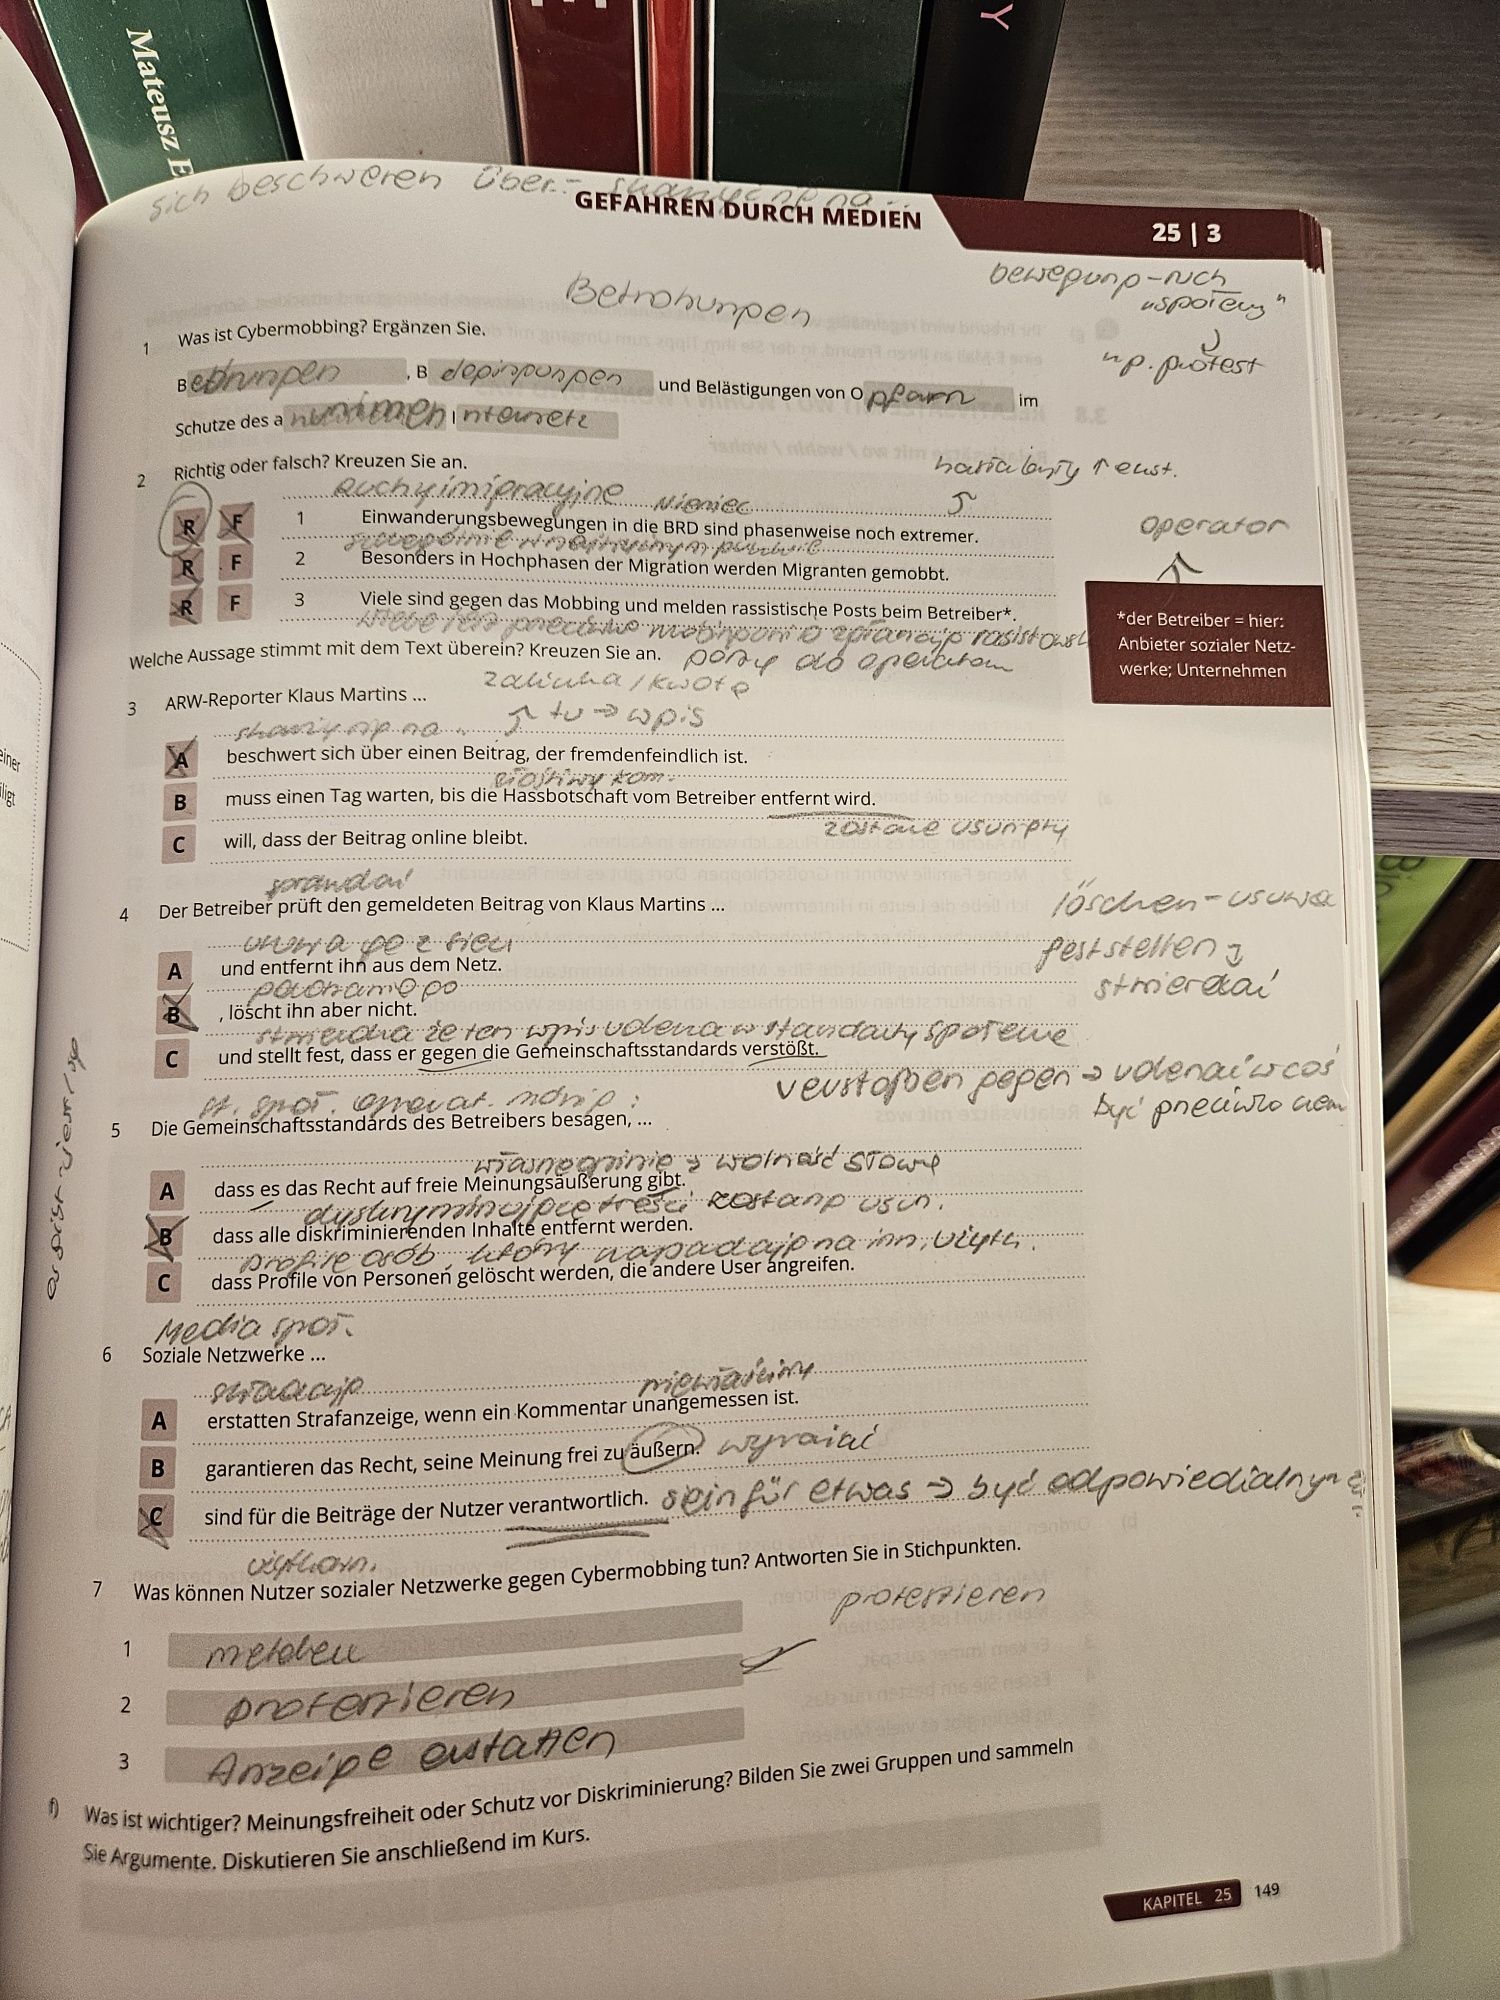 Mateusz E
Y
sich beschweren über.-
GEFAHREN DURCH MEDIEN
25 | 3
Betrohungen
bewegung-ruch
"społeczy"
np. protest
1 Was ist Cybermobbing? Ergänzen Sie.
B , B und Belästigungen von O pfern im
Schutze des a I nternetz
2 Richtig oder falsch? Kreuzen Sie an.
ruchy imigracyjne Niemiec
R F 1 Einwanderungsbewegungen in die BRD sind phasenweise noch extremer.
szczególnie
R F 2 Besonders in Hochphasen der Migration werden Migranten gemobbt.
R F 3 Viele sind gegen das Mobbing und melden rassistische Posts beim Betreiber*.
operator
*der Betreiber = hier:
Anbieter sozialer Netz-
werke; Unternehmen
Welche Aussage stimmt mit dem Text überein? Kreuzen Sie an.
posty do operatora
zaliczka / kwotę
3 ARW-Reporter Klaus Martins ...
tu → wpis
A beschwert sich über einen Beitrag, der fremdenfeindlich ist.
kom.
B muss einen Tag warten, bis die Hassbotschaft vom Betreiber entfernt wird.
zostanie usunięty
C will, dass der Beitrag online bleibt.
4 Der Betreiber prüft den gemeldeten Beitrag von Klaus Martins ...
löschen - usuwać
feststellen
stwierdzać
usuwa go z sieci
A und entfernt ihn aus dem Netz.
B , löscht ihn aber nicht.
stwierdza że ten wpis uderza w standardy społeczne
C und stellt fest, dass er gegen die Gemeinschaftsstandards verstößt.
verstoßen gegen → uderzać w coś
być przeciwko czemu
5 Die Gemeinschaftsstandards des Betreibers besagen, ...
wolność słowa
A dass es das Recht auf freie Meinungsäußerung gibt.
dyskryminujące treści zostaną usun.
B dass alle diskriminierenden Inhalte entfernt werden.
profile osób, którzy napadają na inn. użytk.
C dass Profile von Personen gelöscht werden, die andere User angreifen.
Media społ.
6 Soziale Netzwerke ...
składają niewłaściwy
A erstatten Strafanzeige, wenn ein Kommentar unangemessen ist.
B garantieren das Recht, seine Meinung frei zu äußern. wyrażać
C sind für die Beiträge der Nutzer verantwortlich. sein für etwas → być odpowiedzialnym
użytkown.
7 Was können Nutzer sozialer Netzwerke gegen Cybermobbing tun? Antworten Sie in Stichpunkten.
protestieren
1 melden
2 protestieren
3 Anzeige erstatten
f) Was ist wichtiger? Meinungsfreiheit oder Schutz vor Diskriminierung? Bilden Sie zwei Gruppen und sammeln
Sie Argumente. Diskutieren Sie anschließend im Kurs.
KAPITEL 25 149